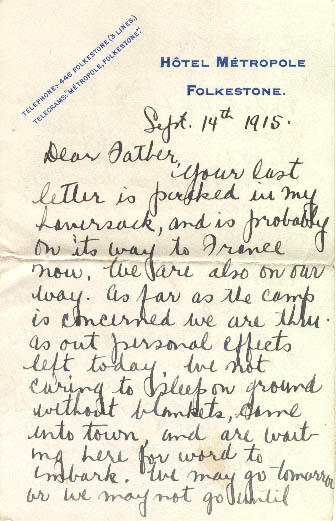 TELEPHONE: 446 FOLKESTONE (3 LINES)
TELEGRAMS: "MÉTROPOLE, FOLKESTONE".
HÔTEL MÉTROPOLE
FOLKESTONE.
Sept. 14th 1915.
Dear Father,
Your last
letter is packed in my
haversack, and is probably
on its way to France
now. We are also on our
way. As far as the camp
is concerned we are thru.
as our personal effects
left today. We not
caring to sleep on ground
without blankets, came
into town, and are wait-
ing here for word to
embark. We may go tomorrow
or we may not go until